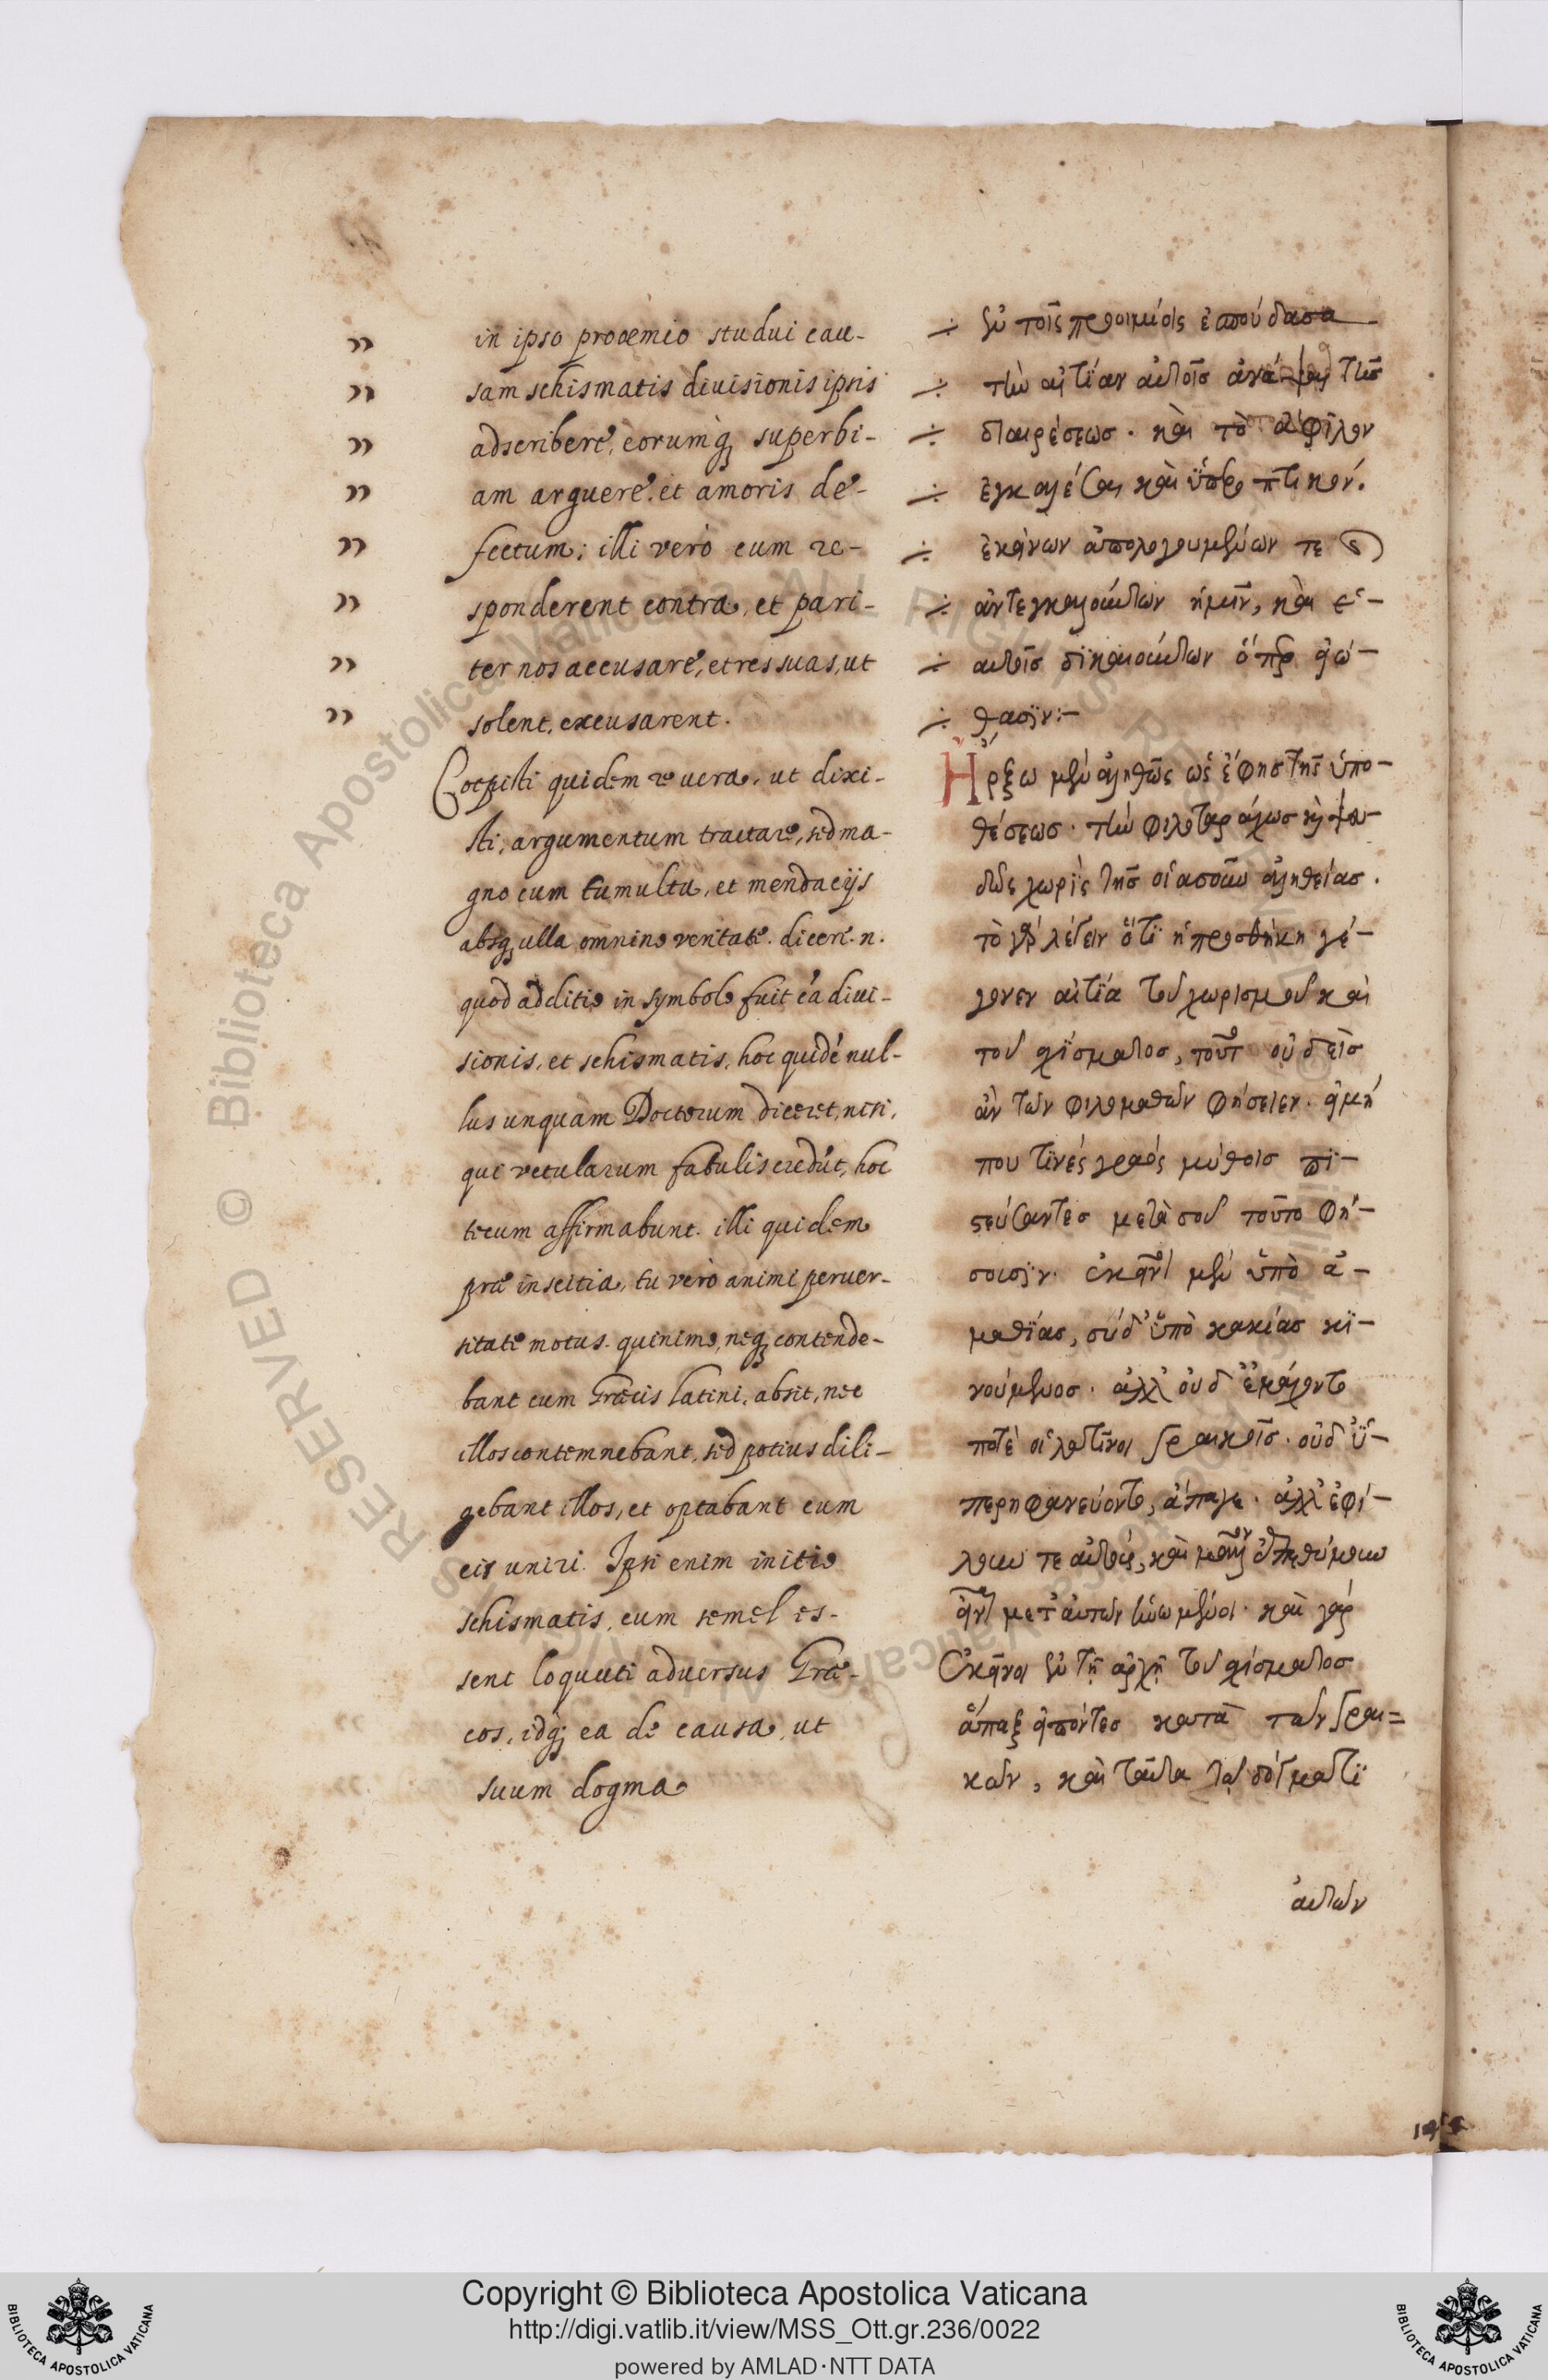 in ipso proœmio studui cau-
sam schismatis diuisionis ipsis
adscribere, eorumq; superbi-
am arguere, et amoris de-
fectum; illi verò cum re-
sponderent contra, et pari-
ter nos accusare, et res suas, ut
solent, excusarent.
Coepisti quidem re uera, ut dixi-
sti, argumentum tractare, sed ma-
gno cum tumultu, et mendacijs
absq; ulla omnino veritate. dicere. n.
quod additio in symbolo fuit câ diui-
sionis, et schismatis, hoc quidé nul-
lus unquam Doctorum diceret, nisi,
qui vetularum fabulis credût, hoc
tecum affirmabunt. illi quidem
præ inscitia, tu verò animi peruer-
sitate motus. quinimo, neq; contende-
bant cum Græcis latini, absit, nec
illos contemnebant, sed potius dili-
gebant illos, et optabant cum
eis uniri. Ipsi enim initio
schismatis, cum semel es-
sent loquuti aduersus Græ-
cos, idq; ea de causa, ut
suum dogma
ἐν τοῖς προοιμίοις ἐσπούδασα
τὴν αἰτίαν αὐτοῖσ ἀνάψαι τῆσ
διαιρέσεωσ. καὶ τὸ ἄφιλον
ἐγκαλέσαι καὶ ὑβριστικόν.
ἐκείνων ἀπολογουμένων τε καὶ
ἀντεγκαλούντων ἡμῖν, καὶ ἑ-
αυτοῖσ δικαιούντων ὅπερ εἰώ-
θασιν:-
Ἤρξω μὲν ἀληθῶς ὡς ἔφησ τῆς ὑπο-
θέσεωσ. τὴν φιλοταράχωσ κὴ ψευ-
δῶς χωρὶς τῆσ οἱασοῦν ἀληθείασ.
τὸ γὰρ λέγειν ὅτι ἡ προσθήκη γέ-
γονεν αἰτία τοῦ χωρισμοῦ καὶ
τοῦ σχίσματοσ, τοῦτο οὐδεὶσ
ἂν τῶν φιλομαθῶν φήσειεν. εἰμή
που τινές γραός μύθοισ πι-
στεύσαντεσ μετὰ σοῦ τοῦτο φή-
σουσιν. ἐκεῖνοι μὲν ὑπὸ ἀ-
μαθίασ, σύ δ' ὑπὸ κακίασ κι-
νούμενοσ. ἀλλ' οὐδ' ἐμάχοντο
ποτὲ οἱ λατῖνοι γραικοῖσ. οὐδ' ὑ-
περηφανεύοντο, ἄπαγε. ἀλλ' ἐφί-
λουν τε αὐτούς, καὶ μᾶλλον ἐπεθύμουν
εἶναι μετ' αὐτῶν ἡνωμένοι. καὶ γάρ
ἐκεῖνοι ἐν τῇ ἀρχῇ τοῦ σχίσματοσ
ἅπαξ εἰπόντεσ κατὰ τῶν γραι=
κῶν, καὶ ταῦτα τῷ δόγματι
αὐτῶν
Copyright © Biblioteca Apostolica Vaticana
http://digi.vatlib.it/view/MSS_Ott.gr.236/0022
powered by AMLAD·NTT DATA
BIBLIOTECA APOSTOLICA VATICANA
BIBLIOTECA APOSTOLICA VATICANA